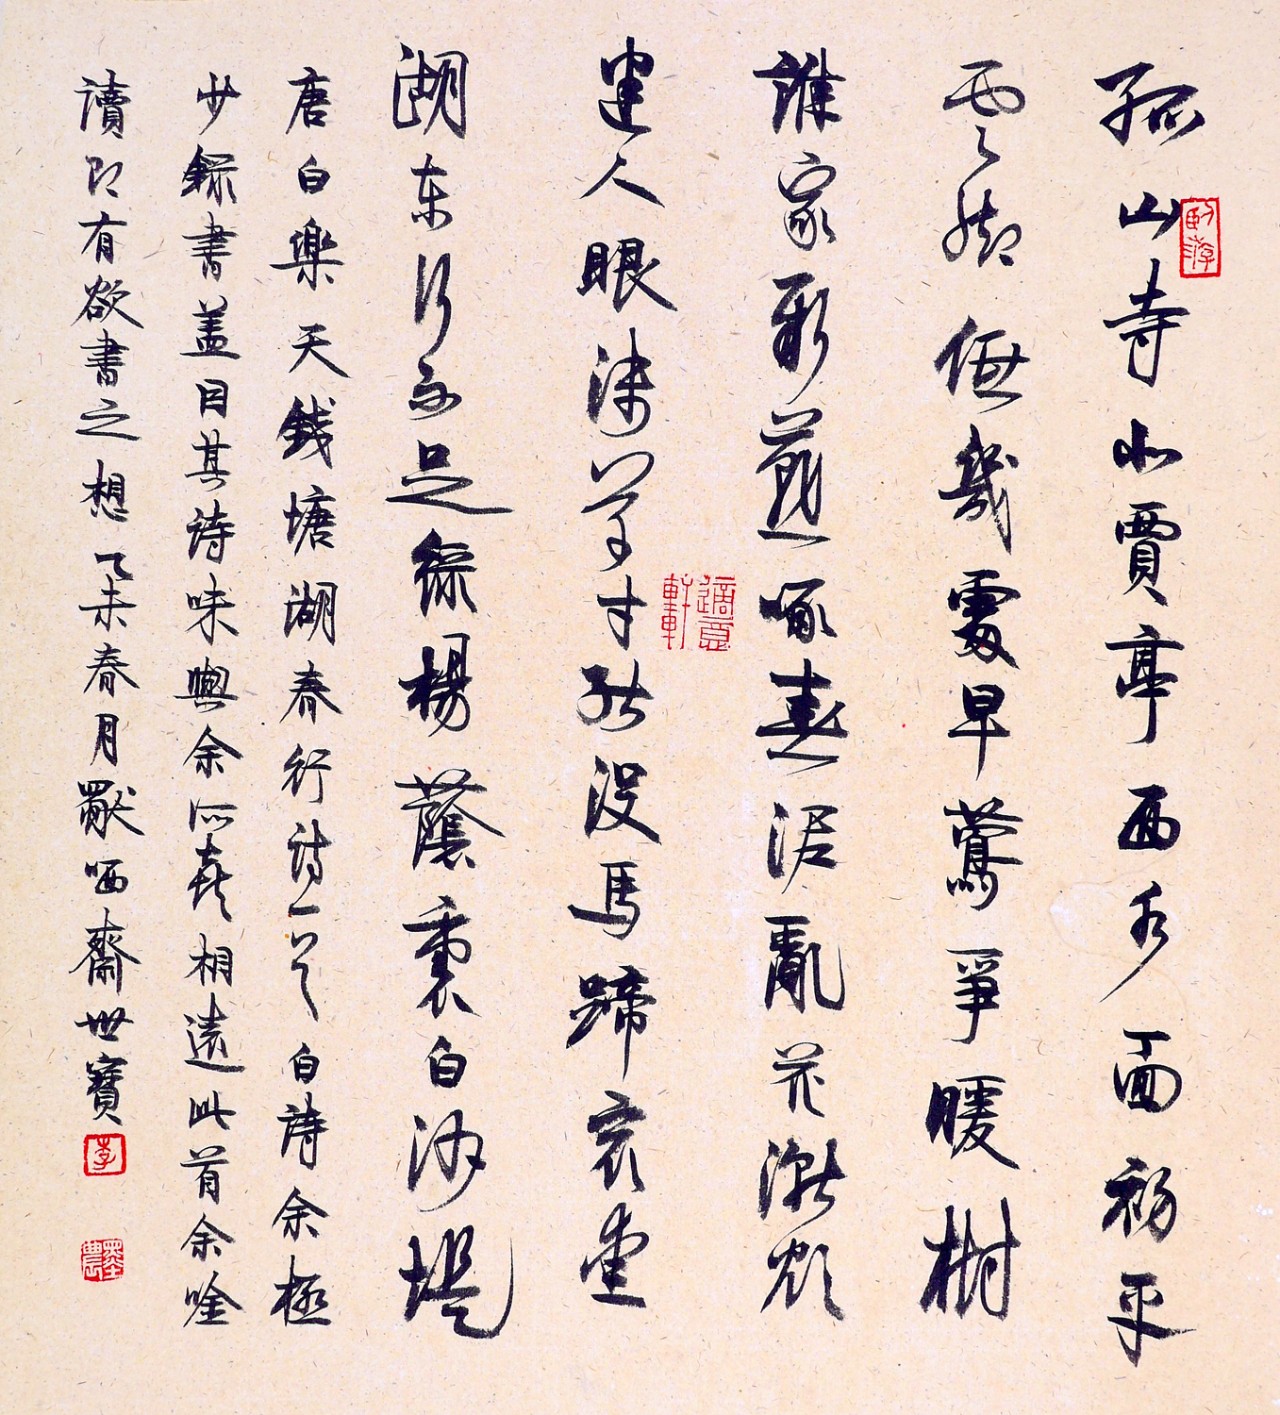 孤山寺北賈亭西水面初平
雲腳低幾處早鶯爭暖樹
誰家新燕啄春泥亂花漸欲
迷人眼淺草才能沒馬蹄最愛
湖東行不足綠楊蔭裏白沙堤
唐白樂天錢塘湖春行詩一首白詩余極
少錄書蓋因其詩味與余所喜相遠此首余唫
讀即有欲書之想乙未春月獻哂齋世寶
臥游
適意軒
李